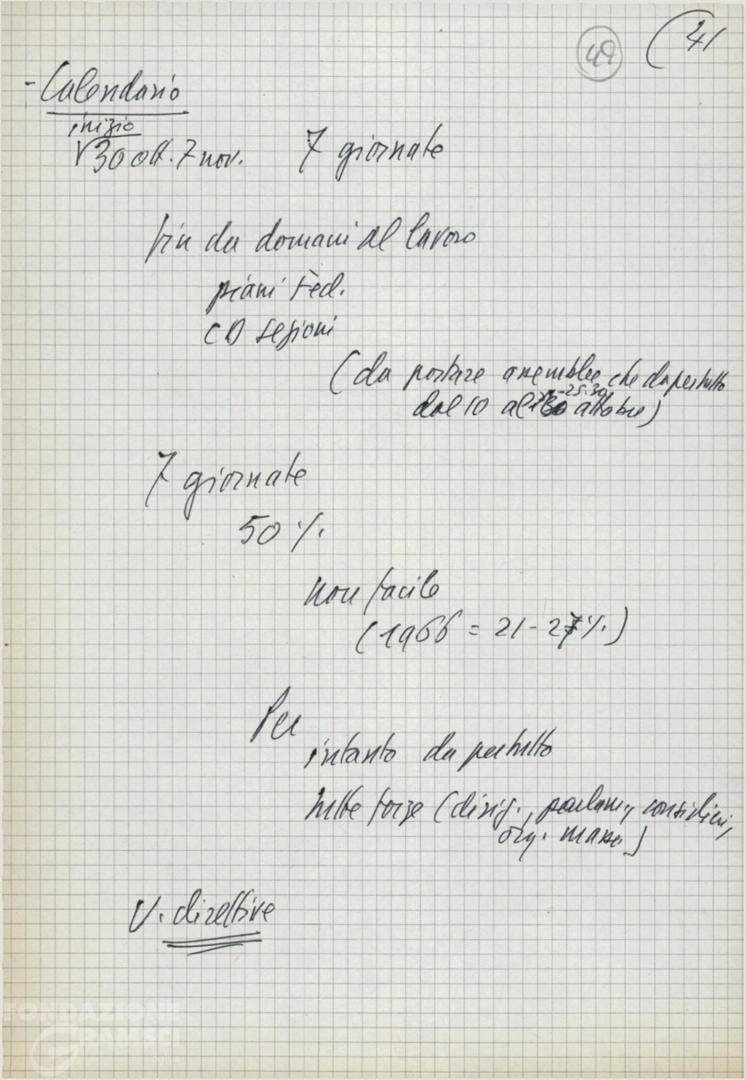 49 (41
- Calendario
inizio
30 ott. 7 nov. 7 giornate
fin da domani al lavoro
piani Fed.
CD sezioni
(da portare assemblee che dapertutto
25-30
dal 10 al ottobre)
7 giornate
50%
non facile
(1966 = 21-27%)
Per
intanto da pertutto
tutte forze (dirig., parlam., consiglieri,
org. massa)
V. direttive
FONDAZIONE
GRAMSCI